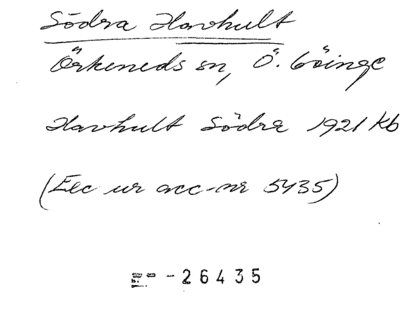 Södra Havhult
Örkeneds sn, Ö. Göinge
Havhult Södra 1921 Kb
(Exc ur acc-nr 5435)
-26435